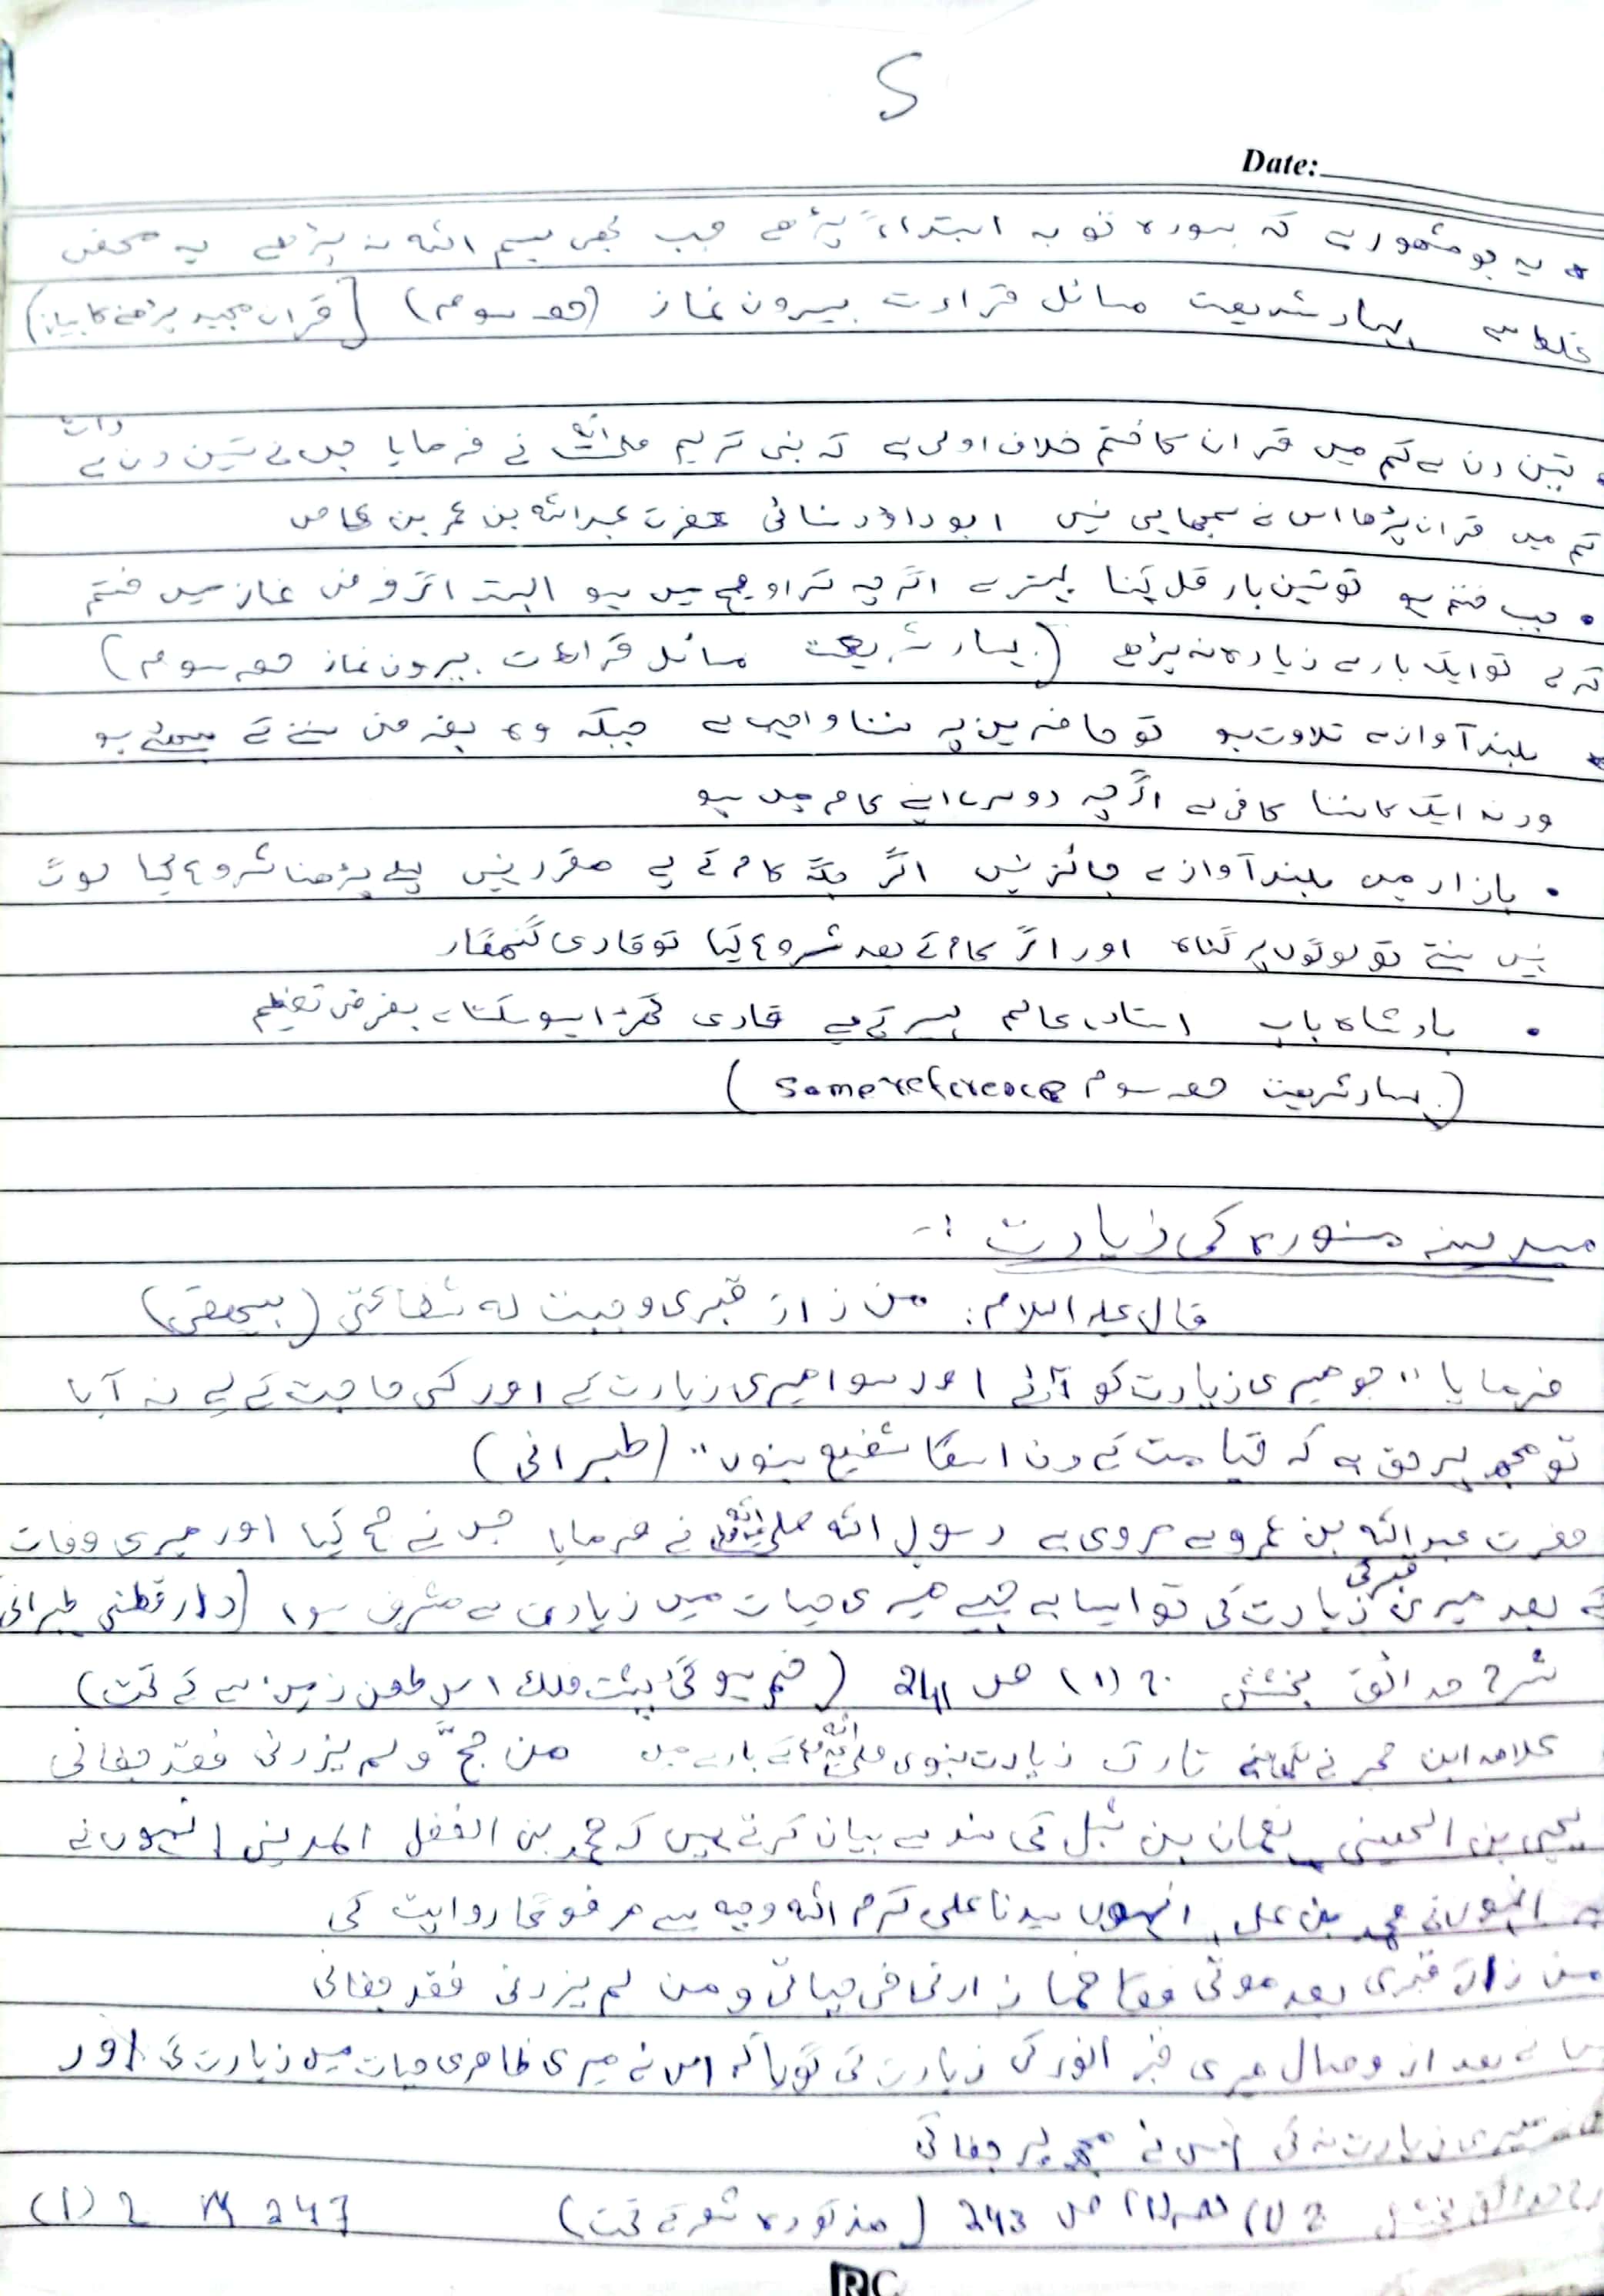 5
Date:
* یہ جو مشہور ہے کہ سورہ توبہ ابتداءً پڑھے جب بھی بسم اللہ نہ پڑھے یہ محض
غلط ہے بہار شریعت مسائل قراءت بیرون نماز (حصہ سوم) [قران مجید پڑھنے کا بیان]
• تین دن سے کم میں قران کا ختم خلاف اولی ہے کہ نبی کریم صلی اللہ نے فرمایا جس نے تین دن رات سے
کم میں قران پڑھا اس نے سمجھا ہی نہیں ابوداؤد نسائی حضرت عبداللہ بن عمر بن عاص
• جب ختم ہو تو تین بار قل پڑھنا بہتر ہے اگرچہ تراویح میں ہو البتہ اگر فرض نماز میں ختم
کرے تو ایک بار سے زیادہ نہ پڑھے (بہار شریعت مسائل قراءت بیرون نماز حصہ سوم)
* بلند آواز سے تلاوت ہو تو حاضرین پہ سننا واجب ہے جبکہ وہ بغرض سننے کے ہو
ورنہ ایک کا سننا کافی ہے اگرچہ دوسرے اپنے کام میں ہو
• بازار میں بلند آواز سے جائز نہیں اگر جگہ کام کے لیے مقرر نہیں پہلے پڑھنا شروع کیا لوگ
نہیں سنتے تو لوگوں پر گناہ اور اگر کام کے بعد شروع کیا تو قاری گنہگار
• بادشاہ باپ استاد، عالم پیر کے لیے قاری کھڑا ہو سکتا ہے بغرض تعظیم
(بہار شریعت حصہ سوم same reference)
مدینہ منورہ کی زیارت :-
قال علیہ السلام: من زار قبری وجبت لہ شفاعتی (بیھقی)
فرمایا "جو میری زیارت کو آئے اور سوا میری زیارت کے اور کسی حاجت کے لیے نہ آیا
تو مجھ پر حق ہے کہ قیامت کے دن اسکا شفیع بنوں" (طبرانی)
حضرت عبداللہ بن عمرو سے مروی ہے رسول اللہ صلی اللہ نے فرمایا جس نے حج کیا اور میری وفات
کے بعد میری قبر کی زیارت کی تو ایسا ہے جیسے میری حیات میں زیارت سے مشرف ہوا (دارقطنی طبرانی
شرح حدائق بخشش ج (1) ص 241 (خم ہو گئی پشت فلک اس طعن زمیں سے کے تحت)
علامہ ابن حجر نے تارک زیارت نبوی صلی اللہ کے بارے میں من حجّ ولم یزرنی فقد جفانی
یحیی بن الحسینی نعمان بن شبل کی سند سے بیان کرتے ہیں کہ محمد بن الفضل المدینی انہوں نے
انہوں نے محمد بن علی انہوں سیدنا علی کرم اللہ وجہہ سے مرفوعا روایت کی
من زار قبری بعد موتی فکانما زارنی فی حیاتی ومن لم یزرنی فقد جفانی
جس نے بعد از وصال میری قبر انور کی زیارت کی گویا کہ اس نے میری ظاھری حیات میں زیارت کی اور
میری زیارت نہ کی اس نے مجھ پر جفا کی
حدائق بخشش ج (1) حصہ (1) ص 243 (مذکورہ شعر کے تحت) 247 ج (1)
RC